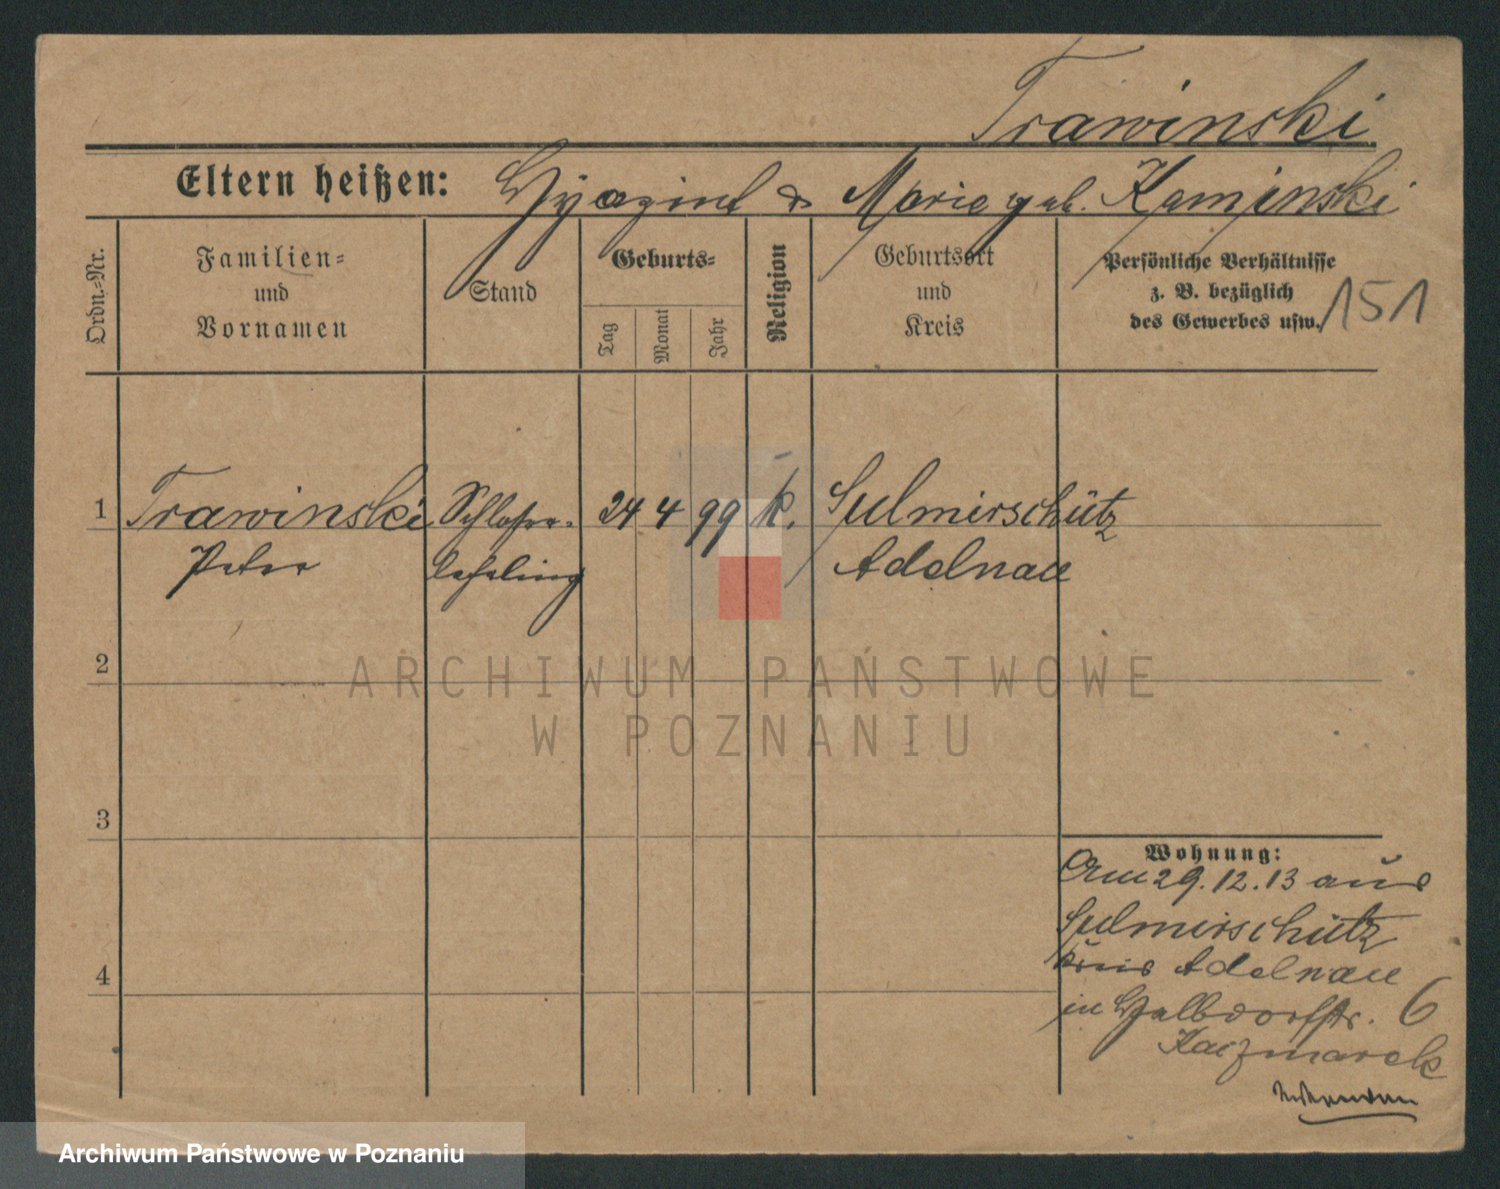 Trawinski
Eltern heißen: Hyazint & Marie geb. Kaminski
Ordn.=Nr.
Familien=
und
Vornamen
Stand
Geburts=
Tag
Monat
Jahr
Religion
Geburtsort
und
Kreis
Persönliche Verhältnisse
z. B. bezüglich
des Gewerbes usw.
151
1 Trawinski Schlosser= 24 4 99 k. Sulmirschütz
Peter lehrling Adelnau
2
ARCHIWUM PAŃSTWOWE
W POZNANIU
3
Wohnung:
Am 29.12.13 aus
Sulmirschütz
Kreis Adelnau
4
in Halbdorfstr. 6
Kaczmarek
Archiwum Państwowe w Poznaniu